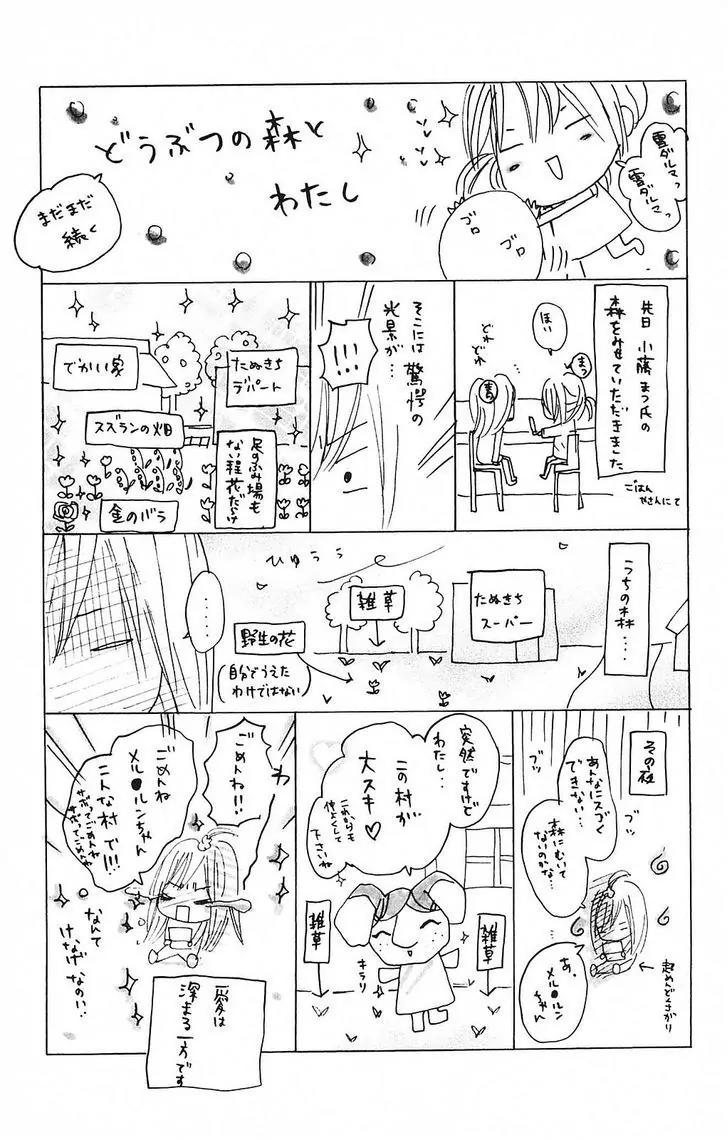 どうぶつの森と
わたし
雪ダルマっ
雪ダルマっ
ゴロ
ゴロ
まだまだ
続く
先日 小藤まつ氏の
森をみせていただきました
ごはん
やさんにて
まつ
ほい
どれ
どれ
そこには驚愕の
光景が…
!!!
たぬきち
デパート
でかい家
スズランの畑
足のふみ場も
ない程花だらけ
金のバラ
うちの森…
たぬきち
スーパー
ひゅうぅ
雑草
野生の花
(自分でうえた
わけではない)
‥‥
その夜
あんなにスゴく
できない…
ブツ
ブツ
森にむいて
ないのかな…
あ、
メル●ルン
ちゃん
超めんどくさがり
突然ですけど
わたし‥
この村が
大スキ♡
これからも
仲よくして
下さいね
雑草
雑草
キラリ
わっ
ごめんね!!
ごめんね
メル●ルンちゃん
こんな村で!!!
サボってごめんね
サボってごめんね
なんて
けなげなの!!
愛は
深まる一方です